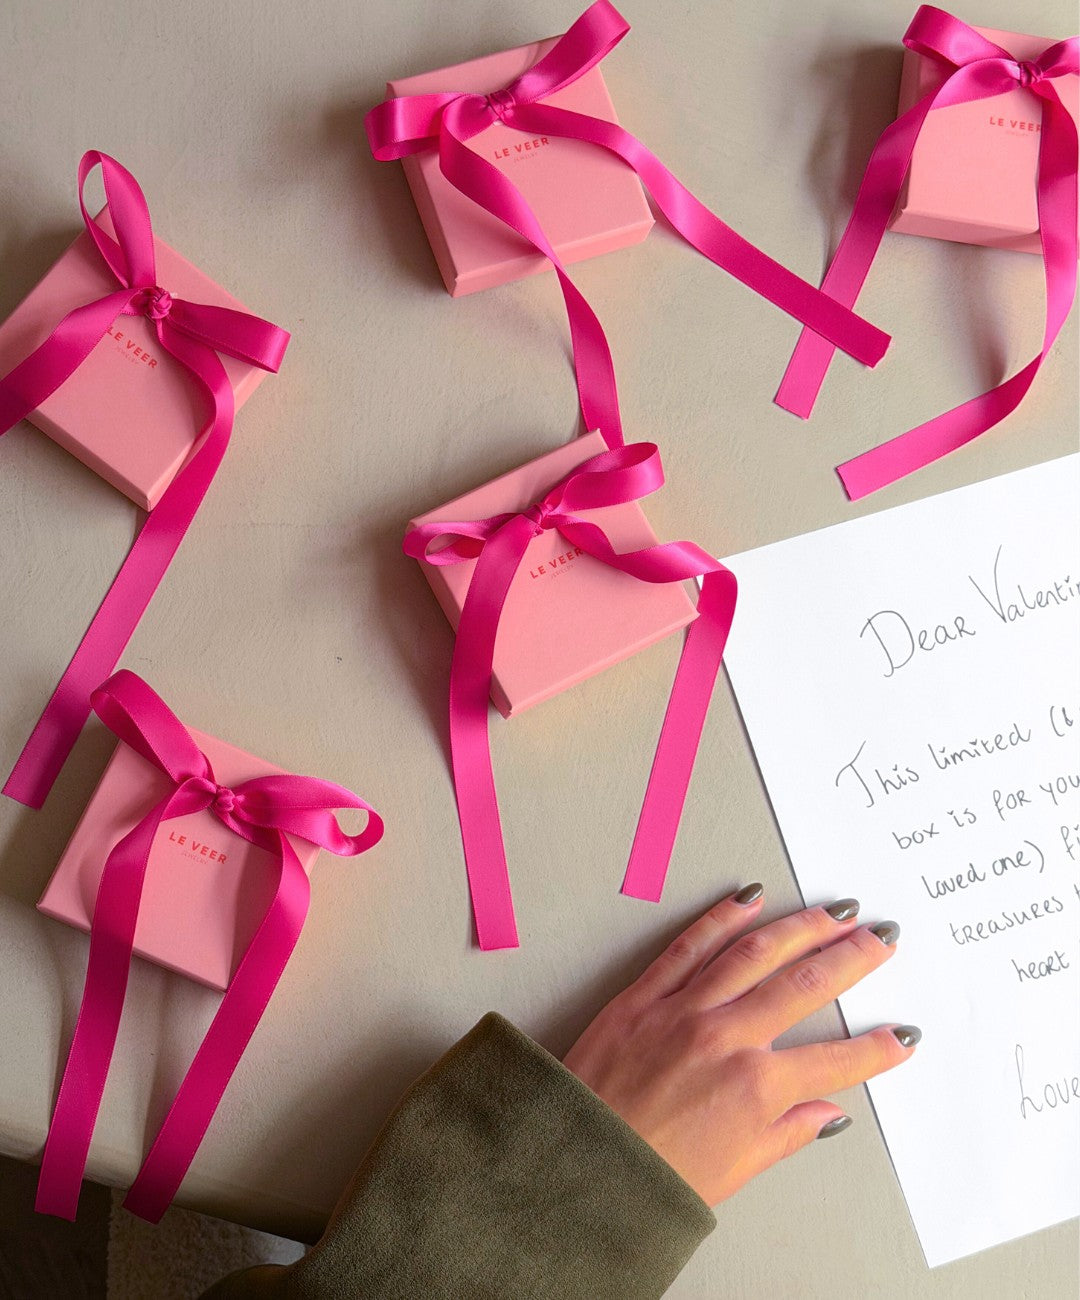 LE VEER
JEWELRY
LE VEER
JEWELRY
LE VEER
JEWELRY
LE VEER
JEWELRY
LE VEER
JEWELRY
Dear Valentin
This limited (
box is for you
loved one)
treasures
heart
Love